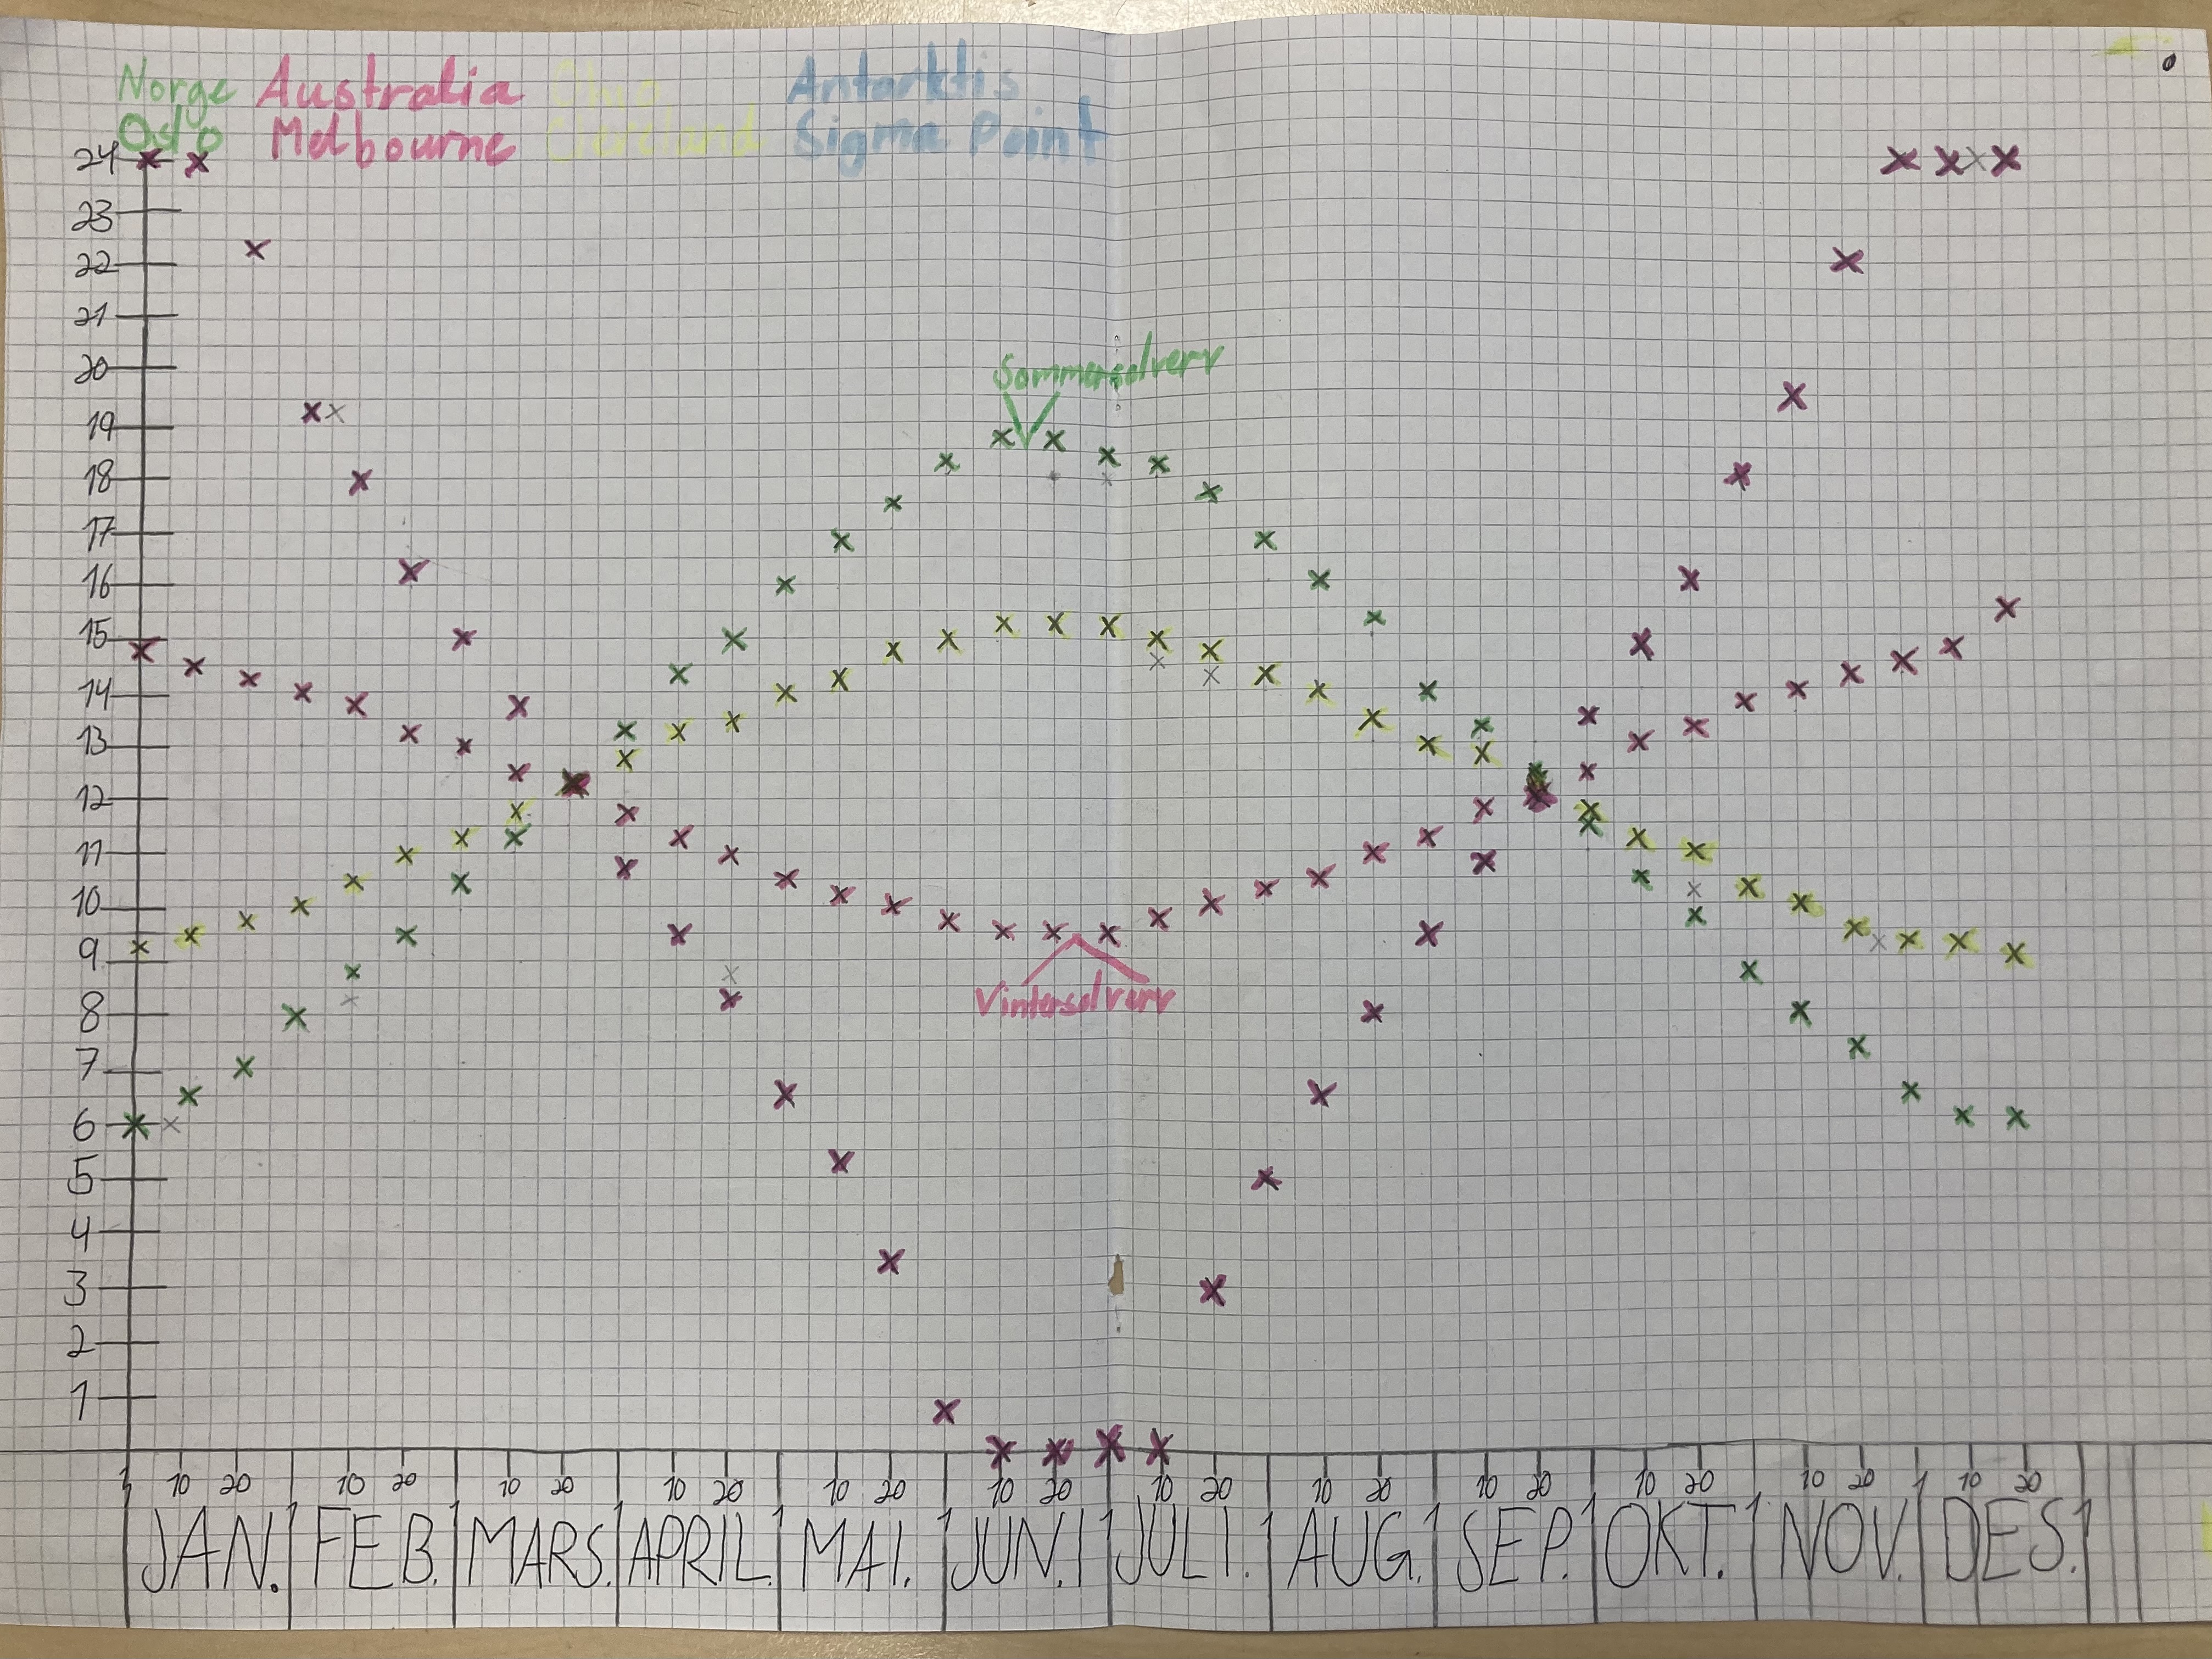 Norge Australia Ohio Antarktis
Oslo Melbourne Cleveland Sigma Point
24
23
22
21
20
19
18
17
16
15
14
13
12
11
10
9
8
7
6
5
4
3
2
1
Sommersolverv
Vintersolverv
1 10 20 10 20 10 20 10 20 10 20 10 20 10 20 10 20 10 20 10 20 10 20 1 10 20
JAN. FEB. MARS. APRIL. MAI. JUN. JULI. AUG. SEP. OKT. NOV. DES.
0